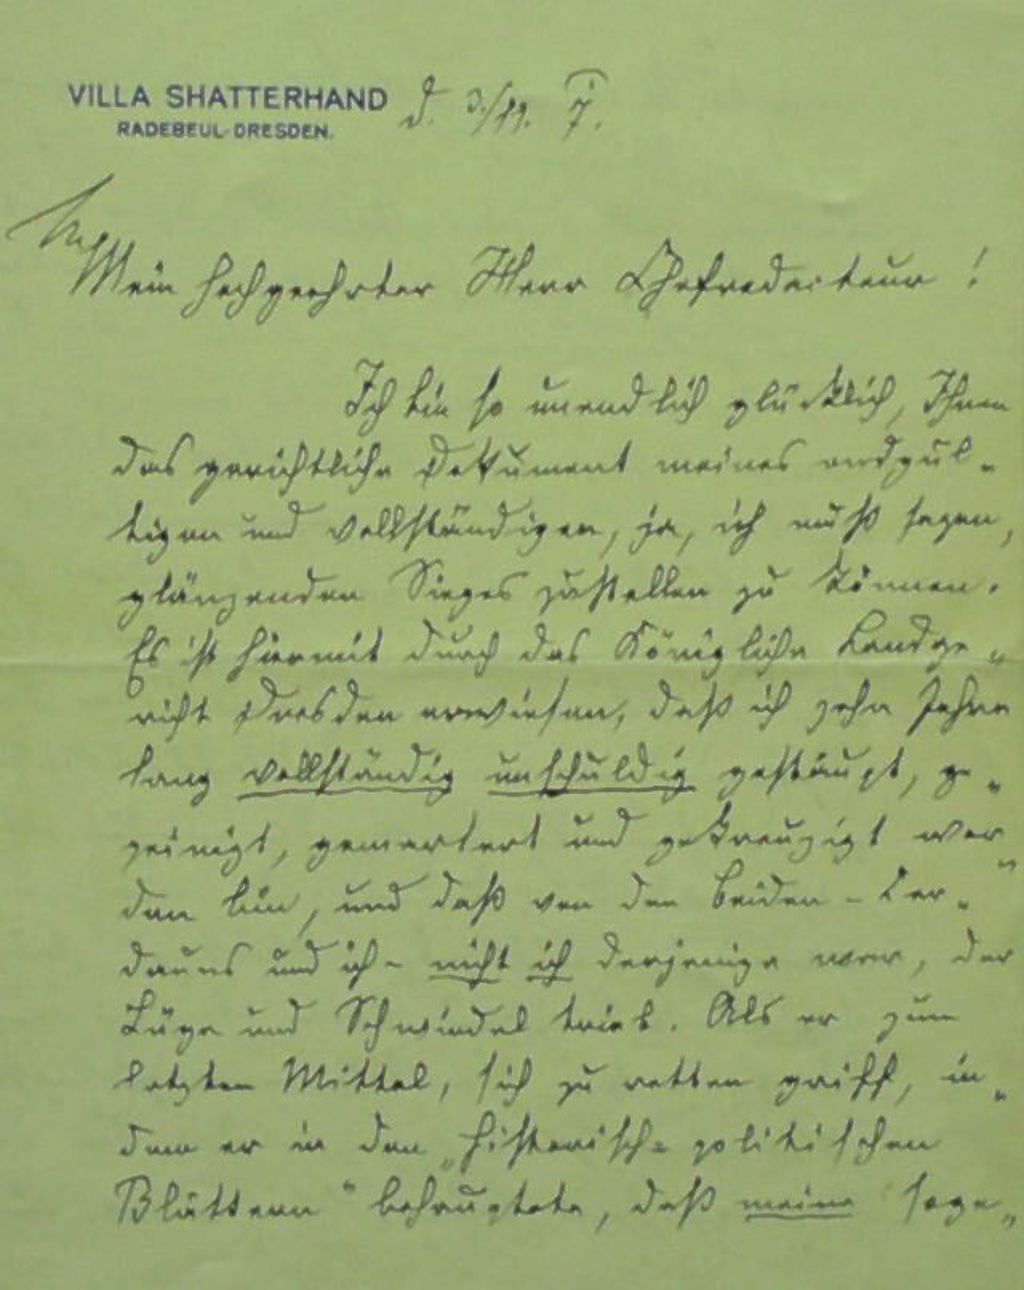 VILLA SHATTERHAND
RADEBEUL-DRESDEN.
d. 3./11. 7.
Mein hochgeehrter Herr Chefredacteur!
Ich bin so unendlich glücklich, Ihnen
das gerichtliche Dokument meines endgül-
tigen und vollständigen, ja, ich muß sagen,
glänzenden Sieges zustellen zu können.
Es ist hiermit durch das Königliche Landge-
richt Dresden erwiesen, daß ich zehn Jahre
lang vollständig unschuldig gestäupt, ge-
peinigt, gemartert und gekreuzigt wor-
den bin, und daß von den Beiden - Car-
dauns und ich - nicht ich derjenige war, der
Lüge und Schwindel trieb. Als er zum
letzten Mittel, sich zu retten griff, in-
dem er in den "Historisch-politischen
Blättern" behauptete, daß meine soge-